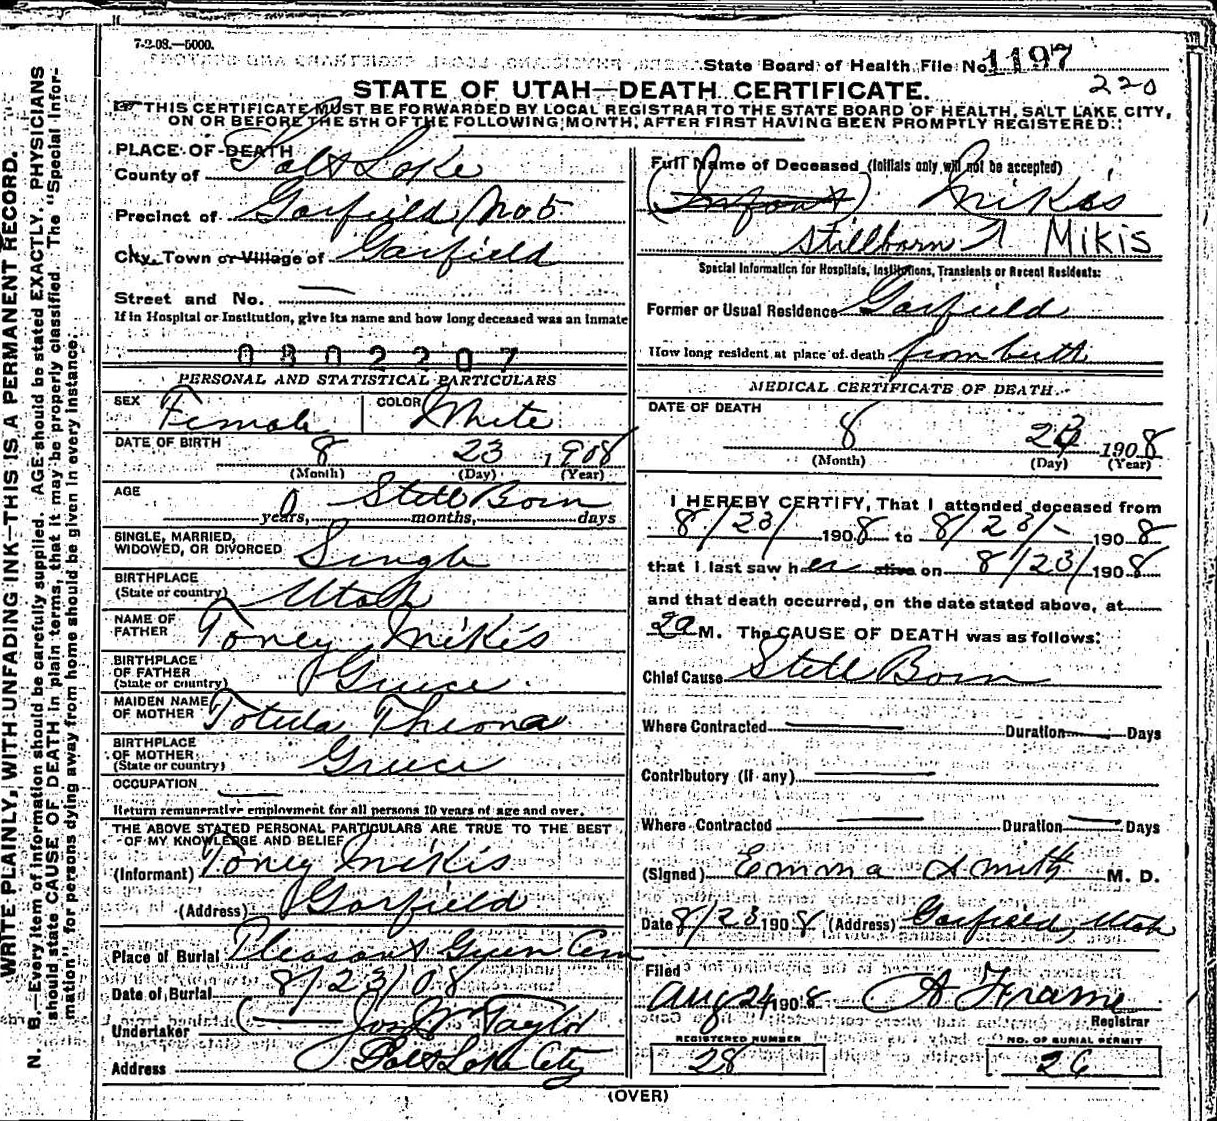 7-2-08.—5000.
State Board of Health File No. 1197
220
STATE OF UTAH—DEATH CERTIFICATE.
THIS CERTIFICATE MUST BE FORWARDED BY LOCAL REGISTRAR TO THE STATE BOARD OF HEALTH, SALT LAKE CITY,
ON OR BEFORE THE 5TH OF THE FOLLOWING MONTH, AFTER FIRST HAVING BEEN PROMPTLY REGISTERED.
WRITE PLAINLY, WITH UNFADING INK—THIS IS A PERMANENT RECORD.
N. B.—Every item of information should be carefully supplied. AGE should be stated EXACTLY. PHYSICIANS
should state CAUSE OF DEATH in plain terms, that it may be properly classified. The "Special Infor-
mation" for persons dying away from home should be given in every instance.
PLACE OF DEATH
County of Salt Lake
Precinct of Garfield No 5
City, Town or Village of Garfield
Street and No. —
If in Hospital or Institution, give its name and how long deceased was an inmate
0802207
PERSONAL AND STATISTICAL PARTICULARS
SEX Female COLOR White
DATE OF BIRTH 8 23 1908
(Month) (Day) (Year)
AGE 0 Still Born
years, months, days
SINGLE, MARRIED,
WIDOWED, OR DIVORCED Single
BIRTHPLACE
(State or country) Utah
NAME OF
FATHER Toney Mikis
BIRTHPLACE
OF FATHER
(State or country) Greece
MAIDEN NAME
OF MOTHER Totula Theona
BIRTHPLACE
OF MOTHER
(State or country) Greece
OCCUPATION —
Return remunerative employment for all persons 10 years of age and over.
THE ABOVE STATED PERSONAL PARTICULARS ARE TRUE TO THE BEST
OF MY KNOWLEDGE AND BELIEF
(Informant) Toney Mikis
(Address) Garfield
Place of Burial Pleasant Green Cem
Date of Burial 8/23/08
Undertaker Jos Wm Taylor
Address Salt Lake City
Full Name of Deceased (Initials only will not be accepted)
(Infant) Mikis
stillborn MIKIS
Special Information for Hospitals, Institutions, Transients or Recent Residents:
Former or Usual Residence Garfield
How long resident at place of death from birth
MEDICAL CERTIFICATE OF DEATH.
DATE OF DEATH
8 23 1908
(Month) (Day) (Year)
I HEREBY CERTIFY, That I attended deceased from
8/23/ 1908 to 8/23/- 1908
that I last saw her alive on 8/23/ 1908
and that death occurred, on the date stated above, at
2a M. The CAUSE OF DEATH was as follows:
Chief Cause Still Born
Where Contracted — Duration — Days
Contributory (if any) —
Where Contracted — Duration — Days
(Signed) Emma Smith M. D.
Date 8/23 1908 (Address) Garfield, Utah
Filed
Aug 24 1908 A Frame
Registrar
REGISTERED NUMBER
28
NO. OF BURIAL PERMIT
26
(OVER)